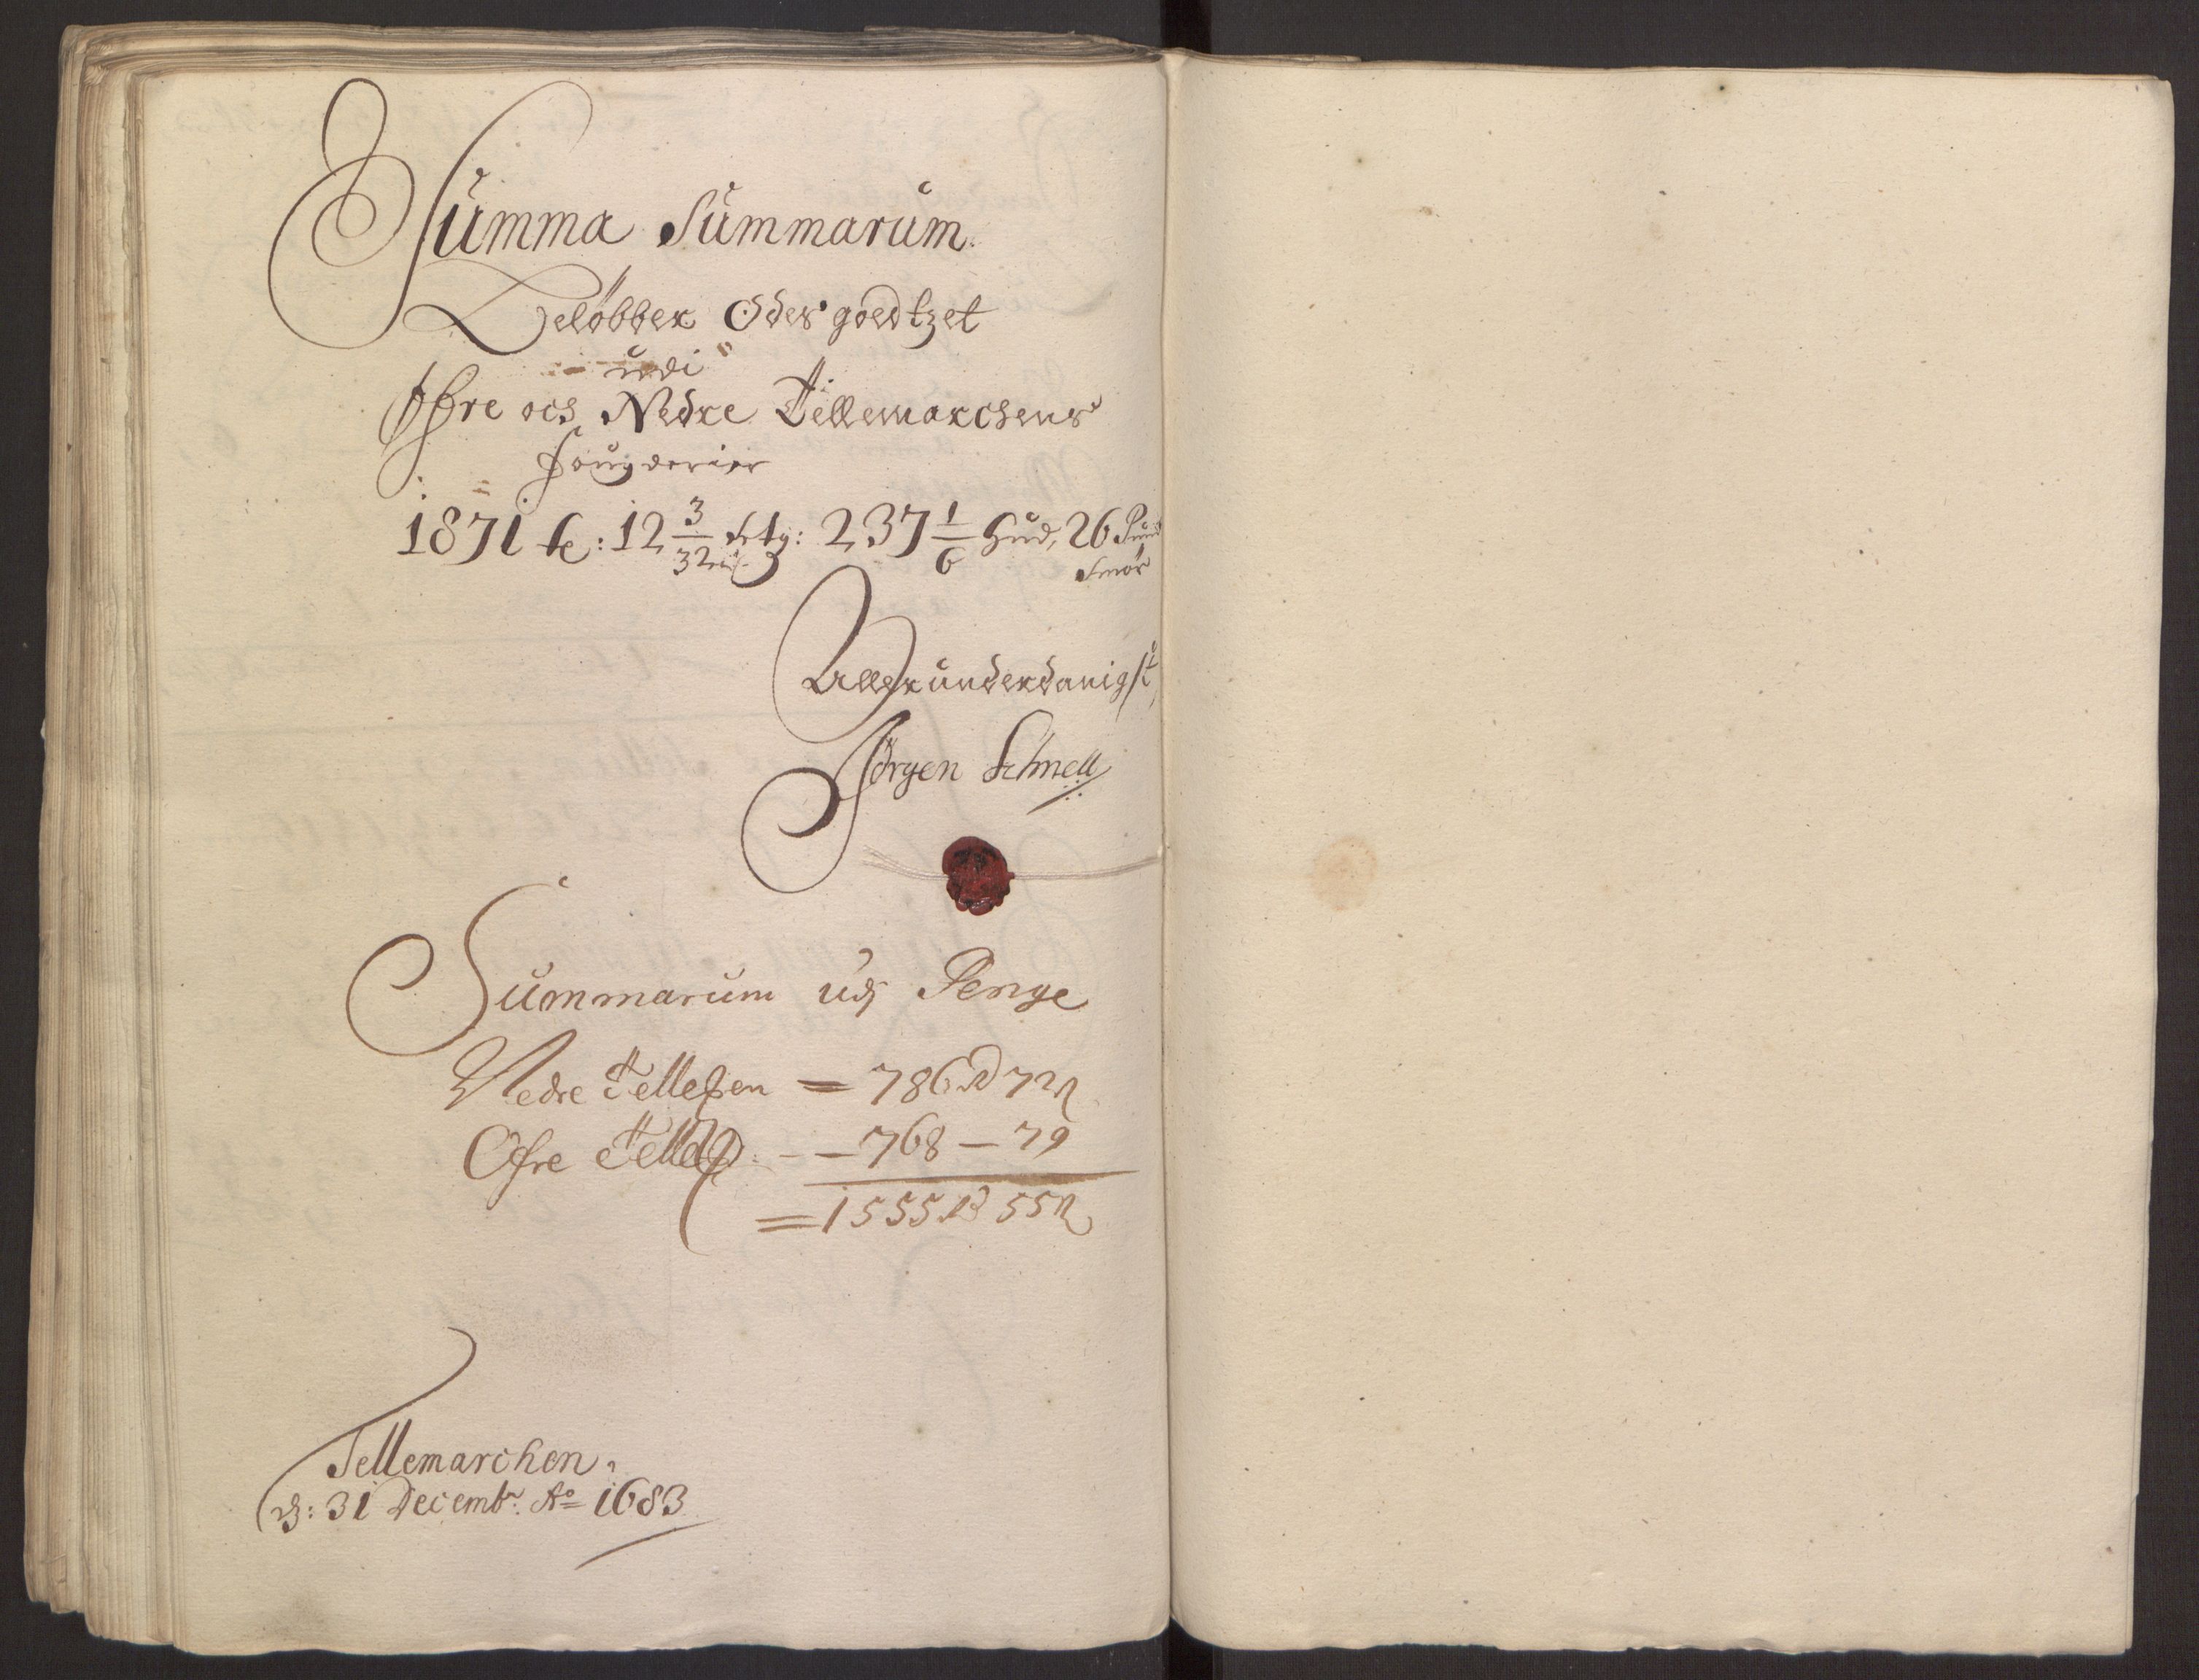 Summa Summarum
Beløbber Odes goedtzet
udi
Øfre och Nedre Tellemarchens
fougderier
1871 t: 12 3/32 set: 237 1/6 Hud, 26 Pund
Smør
Allerunderdanigst
Jørgen Schnell
Summarum udj Penge
Nedre Tellemen = 786 rd 72 s
Øfre Tellem: - - 768 - 79
= 1555 rd 55 s
Tellemarchen
d: 31 Decembr: Ao 1683